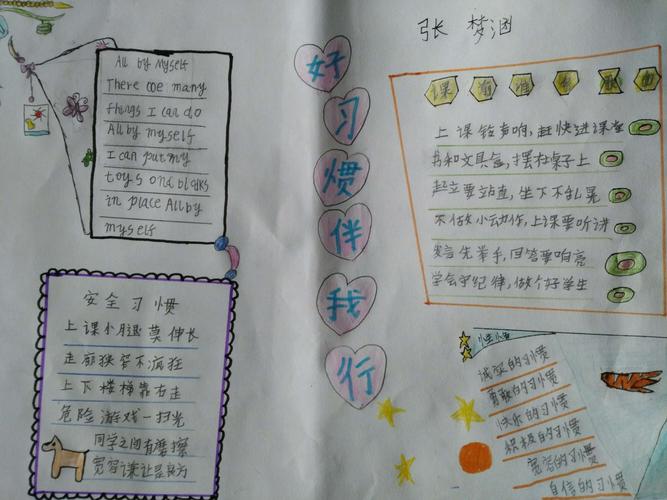 All by Myself
There are many
things I can do
All by myself
I can put my
toys and blocks
in place All by
myself
好习惯伴我行
张梦涵
课前准备歌
上课铃声响,赶快进课堂
书和文具盒,摆在桌子上
起立要站直,坐下不乱晃
不做小动作,上课要听讲
发言先举手,回答要响亮
学会守纪律,做个好学生
安全习惯
上课小腿莫伸长
走廊狭窄不疯狂
上下楼梯靠右走
危险游戏一扫光
同学之间有磨擦
宽容谦让是良方
诚实的习惯
勇敢的习惯
快乐的习惯
积极的习惯
宽容的习惯
自信的习惯